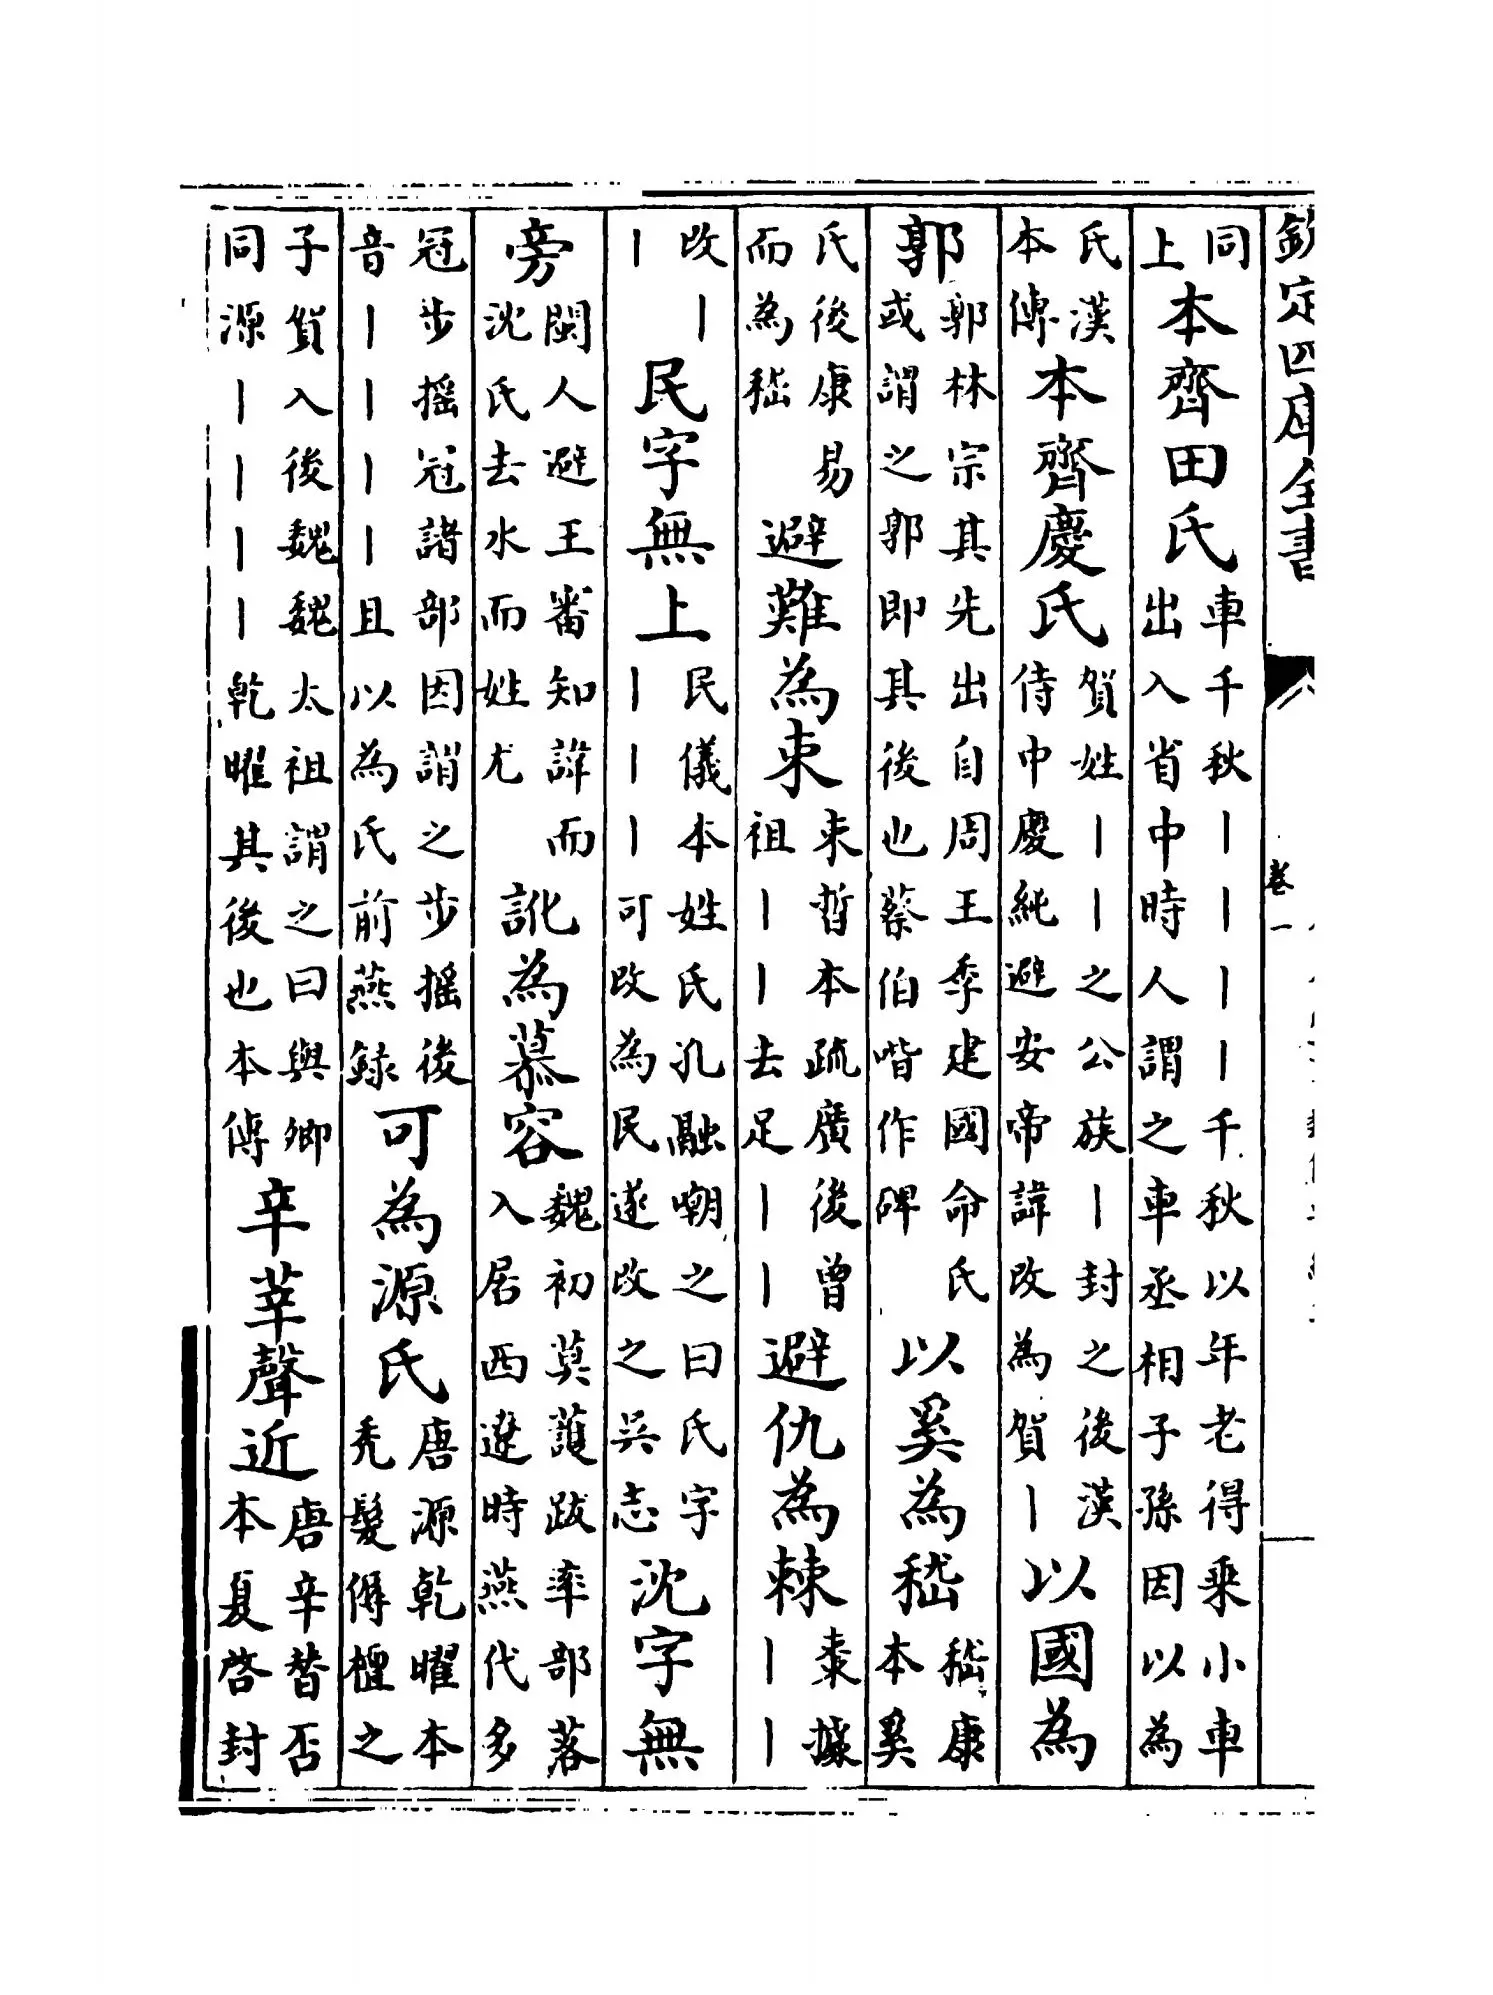 欽定四庫全書 卷一
同上本齊田氏車千秋丨丨丨丨千秋以年老得乘小車出入省中時人謂之車丞相子孫因以為
氏漢本傳本齊慶氏賀姓丨丨之公族丨封之後漢侍中慶純避安帝諱改為賀丨以國為
郭郭林宗其先出自周王季建國命氏或謂之郭即其後也蔡伯喈作碑以奚為嵇嵇康本奚
氏後康易而為嵇避難為束束晳本疏廣後曾祖丨丨去足丨丨避仇為棘棗據丨丨
改丨丨民字無上民儀本姓氏孔融嘲之曰氏字丨丨丨可改為民遂改之吳志沈字無
旁閩人避王審知諱而沈氏去水而姓尤訛為慕容魏初莫護跋率部落入居西遼時燕代多
冠步摇冠諸部因謂之步摇後音丨丨丨丨且以為氏前燕録可為源氏唐源乾曜本秃髮傉檀之
子賀入後魏魏太祖謂之曰與卿同源丨丨丨丨乾曜其後也本傳辛莘聲近唐辛替否本夏啓封